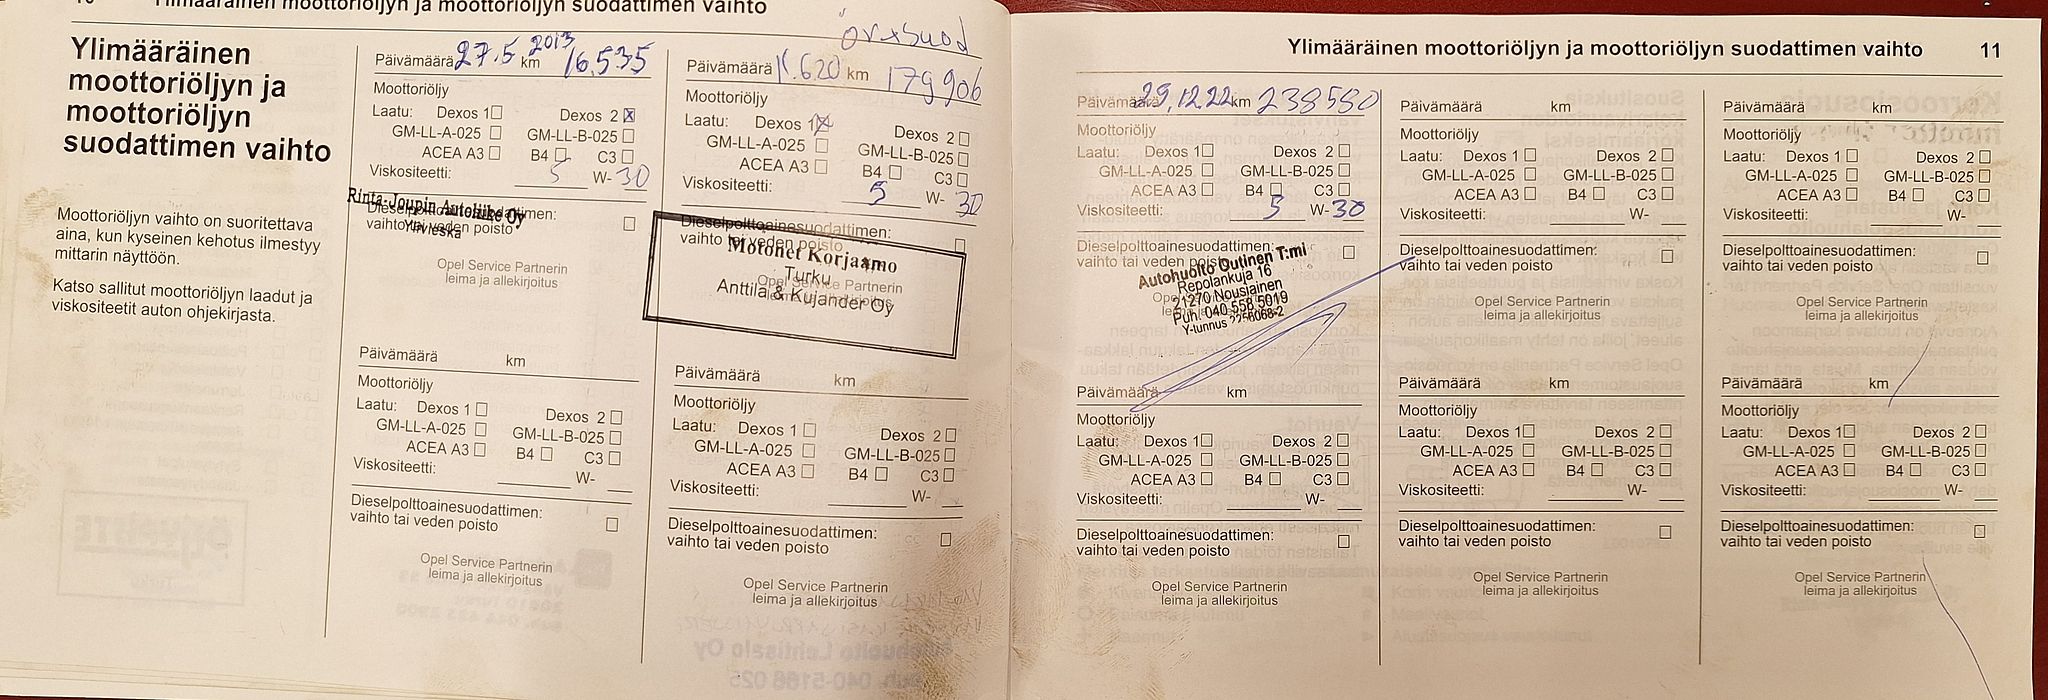 Ylimääräinen moottoriöljyn ja moottoriöljyn suodattimen vaihto
Ylimääräinen
moottoriöljyn ja
moottoriöljyn
suodattimen vaihto
Moottoriöljyn vaihto on suoritettava
aina, kun kyseinen kehotus ilmestyy
mittarin näyttöön.
Katso sallitut moottoriöljyn laadut ja
viskositeetit auton ohjekirjasta.
Päivämäärä 27.5 2013 km 16.535
Moottoriöljy
Laatu: Dexos 1 Dexos 2
GM-LL-A-025 GM-LL-B-025
ACEA A3 B4 C3
Viskositeetti: 5 W- 30
Rinta-Joupin Autoliike Oy
Ylivieska
Dieselpolttoainesuodattimen:
vaihto tai veden poisto
Opel Service Partnerin
leima ja allekirjoitus
Päivämäärä km
Moottoriöljy
Laatu: Dexos 1 Dexos 2
GM-LL-A-025 GM-LL-B-025
ACEA A3 B4 C3
Viskositeetti: W-
Dieselpolttoainesuodattimen:
vaihto tai veden poisto
Opel Service Partnerin
leima ja allekirjoitus
Päivämäärä 11.6.20 km 179906
Moottoriöljy
Laatu: Dexos 1 Dexos 2
GM-LL-A-025 GM-LL-B-025
ACEA A3 B4 C3
Viskositeetti: 5 W- 30
Dieselpolttoainesuodattimen:
vaihto tai veden poisto
Motonet Korjaamo
Turku
Anttila & Kujander Oy
Opel Service Partnerin
Päivämäärä km
Moottoriöljy
Laatu: Dexos 1 Dexos 2
GM-LL-A-025 GM-LL-B-025
ACEA A3 B4 C3
Viskositeetti: W-
Dieselpolttoainesuodattimen:
vaihto tai veden poisto
Opel Service Partnerin
leima ja allekirjoitus
Ylimääräinen moottoriöljyn ja moottoriöljyn suodattimen vaihto 11
Päivämäärä 29.12.22 km 238580
Moottoriöljy
Laatu: Dexos 1 Dexos 2
GM-LL-A-025 GM-LL-B-025
ACEA A3 B4 C3
Viskositeetti: 5 W- 30
Dieselpolttoainesuodattimen:
vaihto tai veden poisto
Autohuolto Outinen T:mi
Repolankuja 16
21270 Nousiainen
Puh. 040 558 5019
Y-tunnus 2256068-2
Päivämäärä km
Moottoriöljy
Laatu: Dexos 1 Dexos 2
GM-LL-A-025 GM-LL-B-025
ACEA A3 B4 C3
Viskositeetti: W-
Dieselpolttoainesuodattimen:
vaihto tai veden poisto
Opel Service Partnerin
leima ja allekirjoitus
Päivämäärä km
Moottoriöljy
Laatu: Dexos 1 Dexos 2
GM-LL-A-025 GM-LL-B-025
ACEA A3 B4 C3
Viskositeetti: W-
Dieselpolttoainesuodattimen:
vaihto tai veden poisto
Opel Service Partnerin
leima ja allekirjoitus
Päivämäärä km
Moottoriöljy
Laatu: Dexos 1 Dexos 2
GM-LL-A-025 GM-LL-B-025
ACEA A3 B4 C3
Viskositeetti: W-
Dieselpolttoainesuodattimen:
vaihto tai veden poisto
Opel Service Partnerin
leima ja allekirjoitus
Päivämäärä km
Moottoriöljy
Laatu: Dexos 1 Dexos 2
GM-LL-A-025 GM-LL-B-025
ACEA A3 B4 C3
Viskositeetti: W-
Dieselpolttoainesuodattimen:
vaihto tai veden poisto
Opel Service Partnerin
leima ja allekirjoitus
Päivämäärä km
Moottoriöljy
Laatu: Dexos 1 Dexos 2
GM-LL-A-025 GM-LL-B-025
ACEA A3 B4 C3
Viskositeetti: W-
Dieselpolttoainesuodattimen:
vaihto tai veden poisto
Opel Service Partnerin
leima ja allekirjoitus